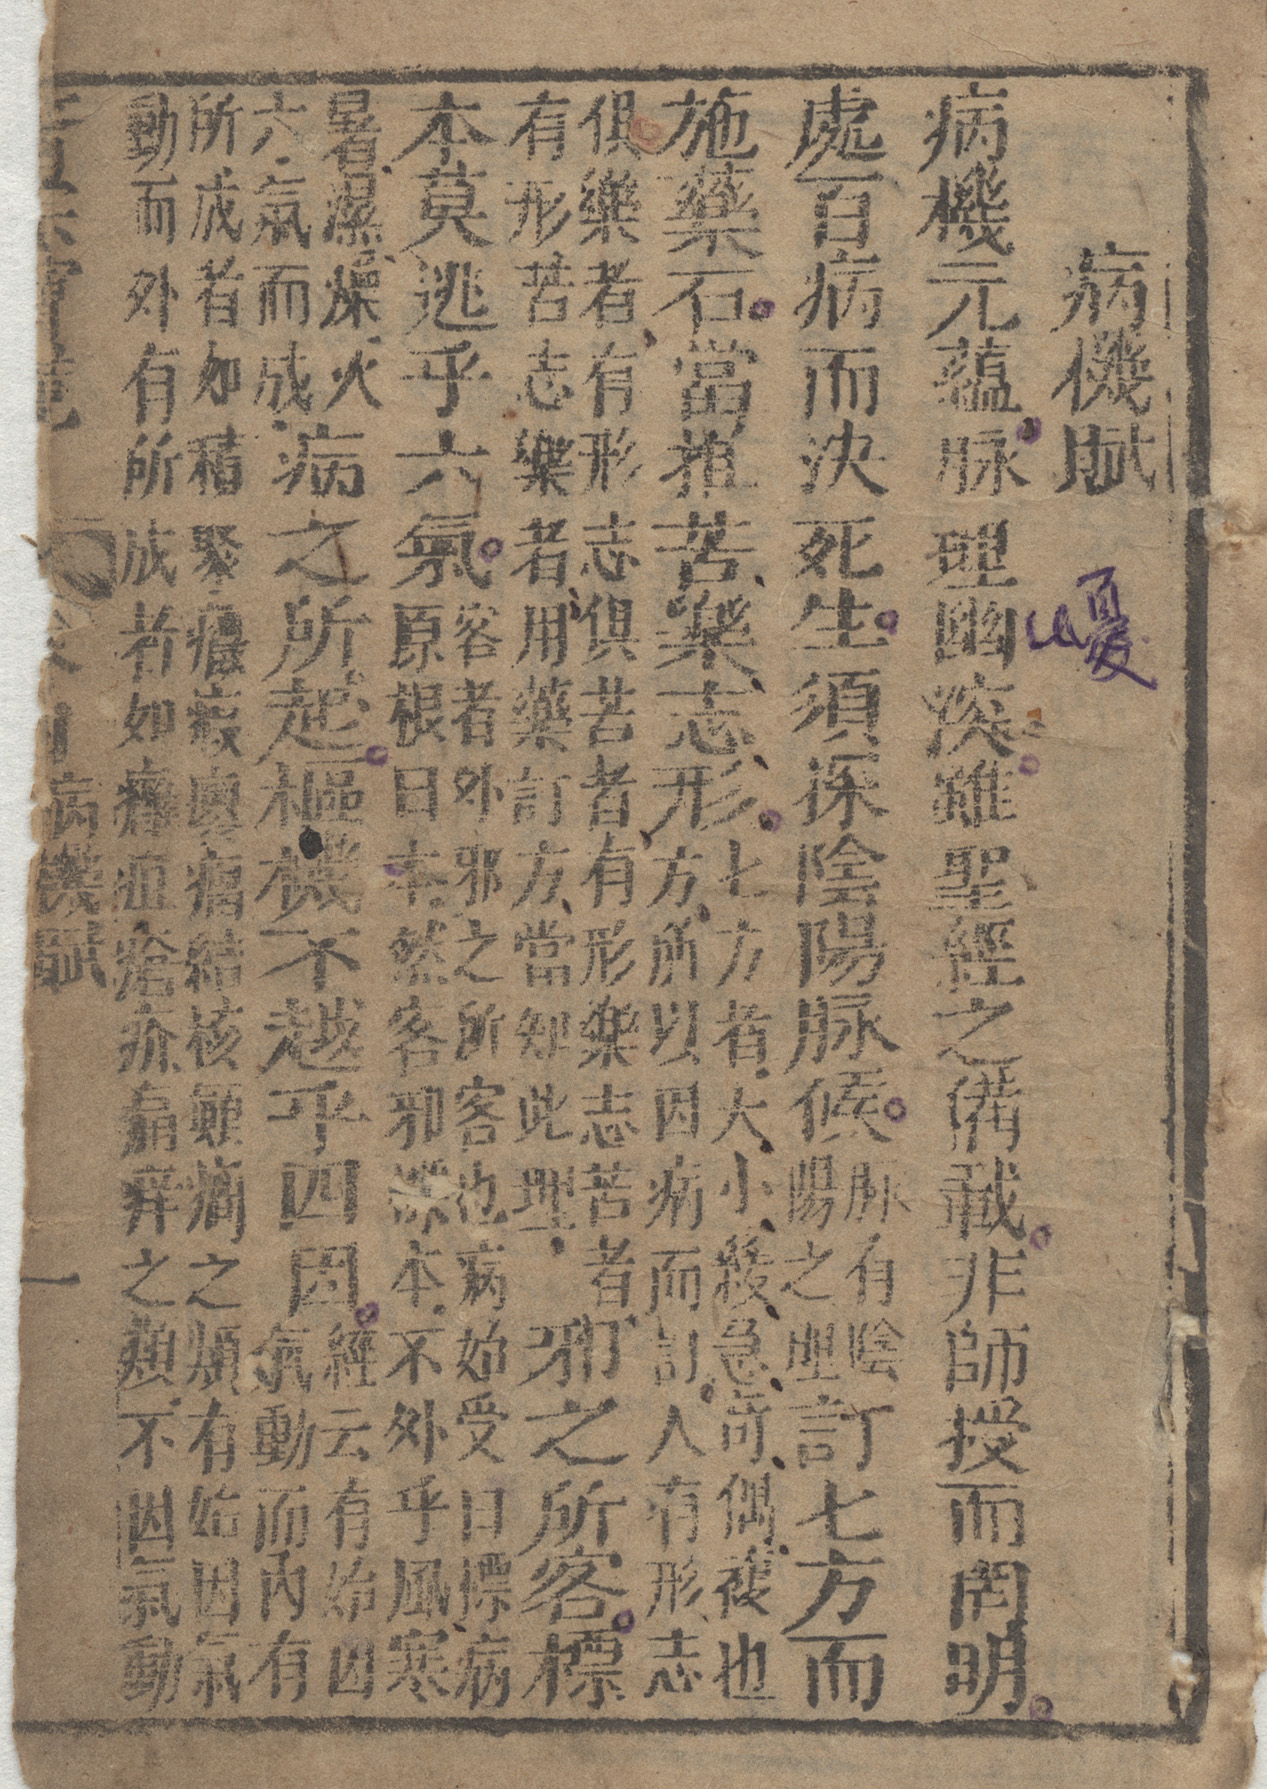 病機賦
病機元蘊脉理幽深雖聖經之備載非師授而罔明
處百病而決死生須探陰陽脉候脉有陰陽之理訂七方而
施藥石當推苦樂志形七方者大小緩急奇偶複也
方所以因病而訂人有形志
俱樂者有形志俱苦者有形樂志苦者
有形苦志樂者用藥訂方當知此理邪之所客標
本莫逃乎六氣客者外邪之所客也病始受曰標病
原根曰本然客邪標本不外乎風寒
暑濕燥火
六氣而成病之所起樞機不越乎四因經云有始因
氣動而內有
所成者如積聚癥瘕瘤結核癲癇之類有始因氣
動而外有所成者如癰疽瘡疥痒之類不因氣動
病機賦 一